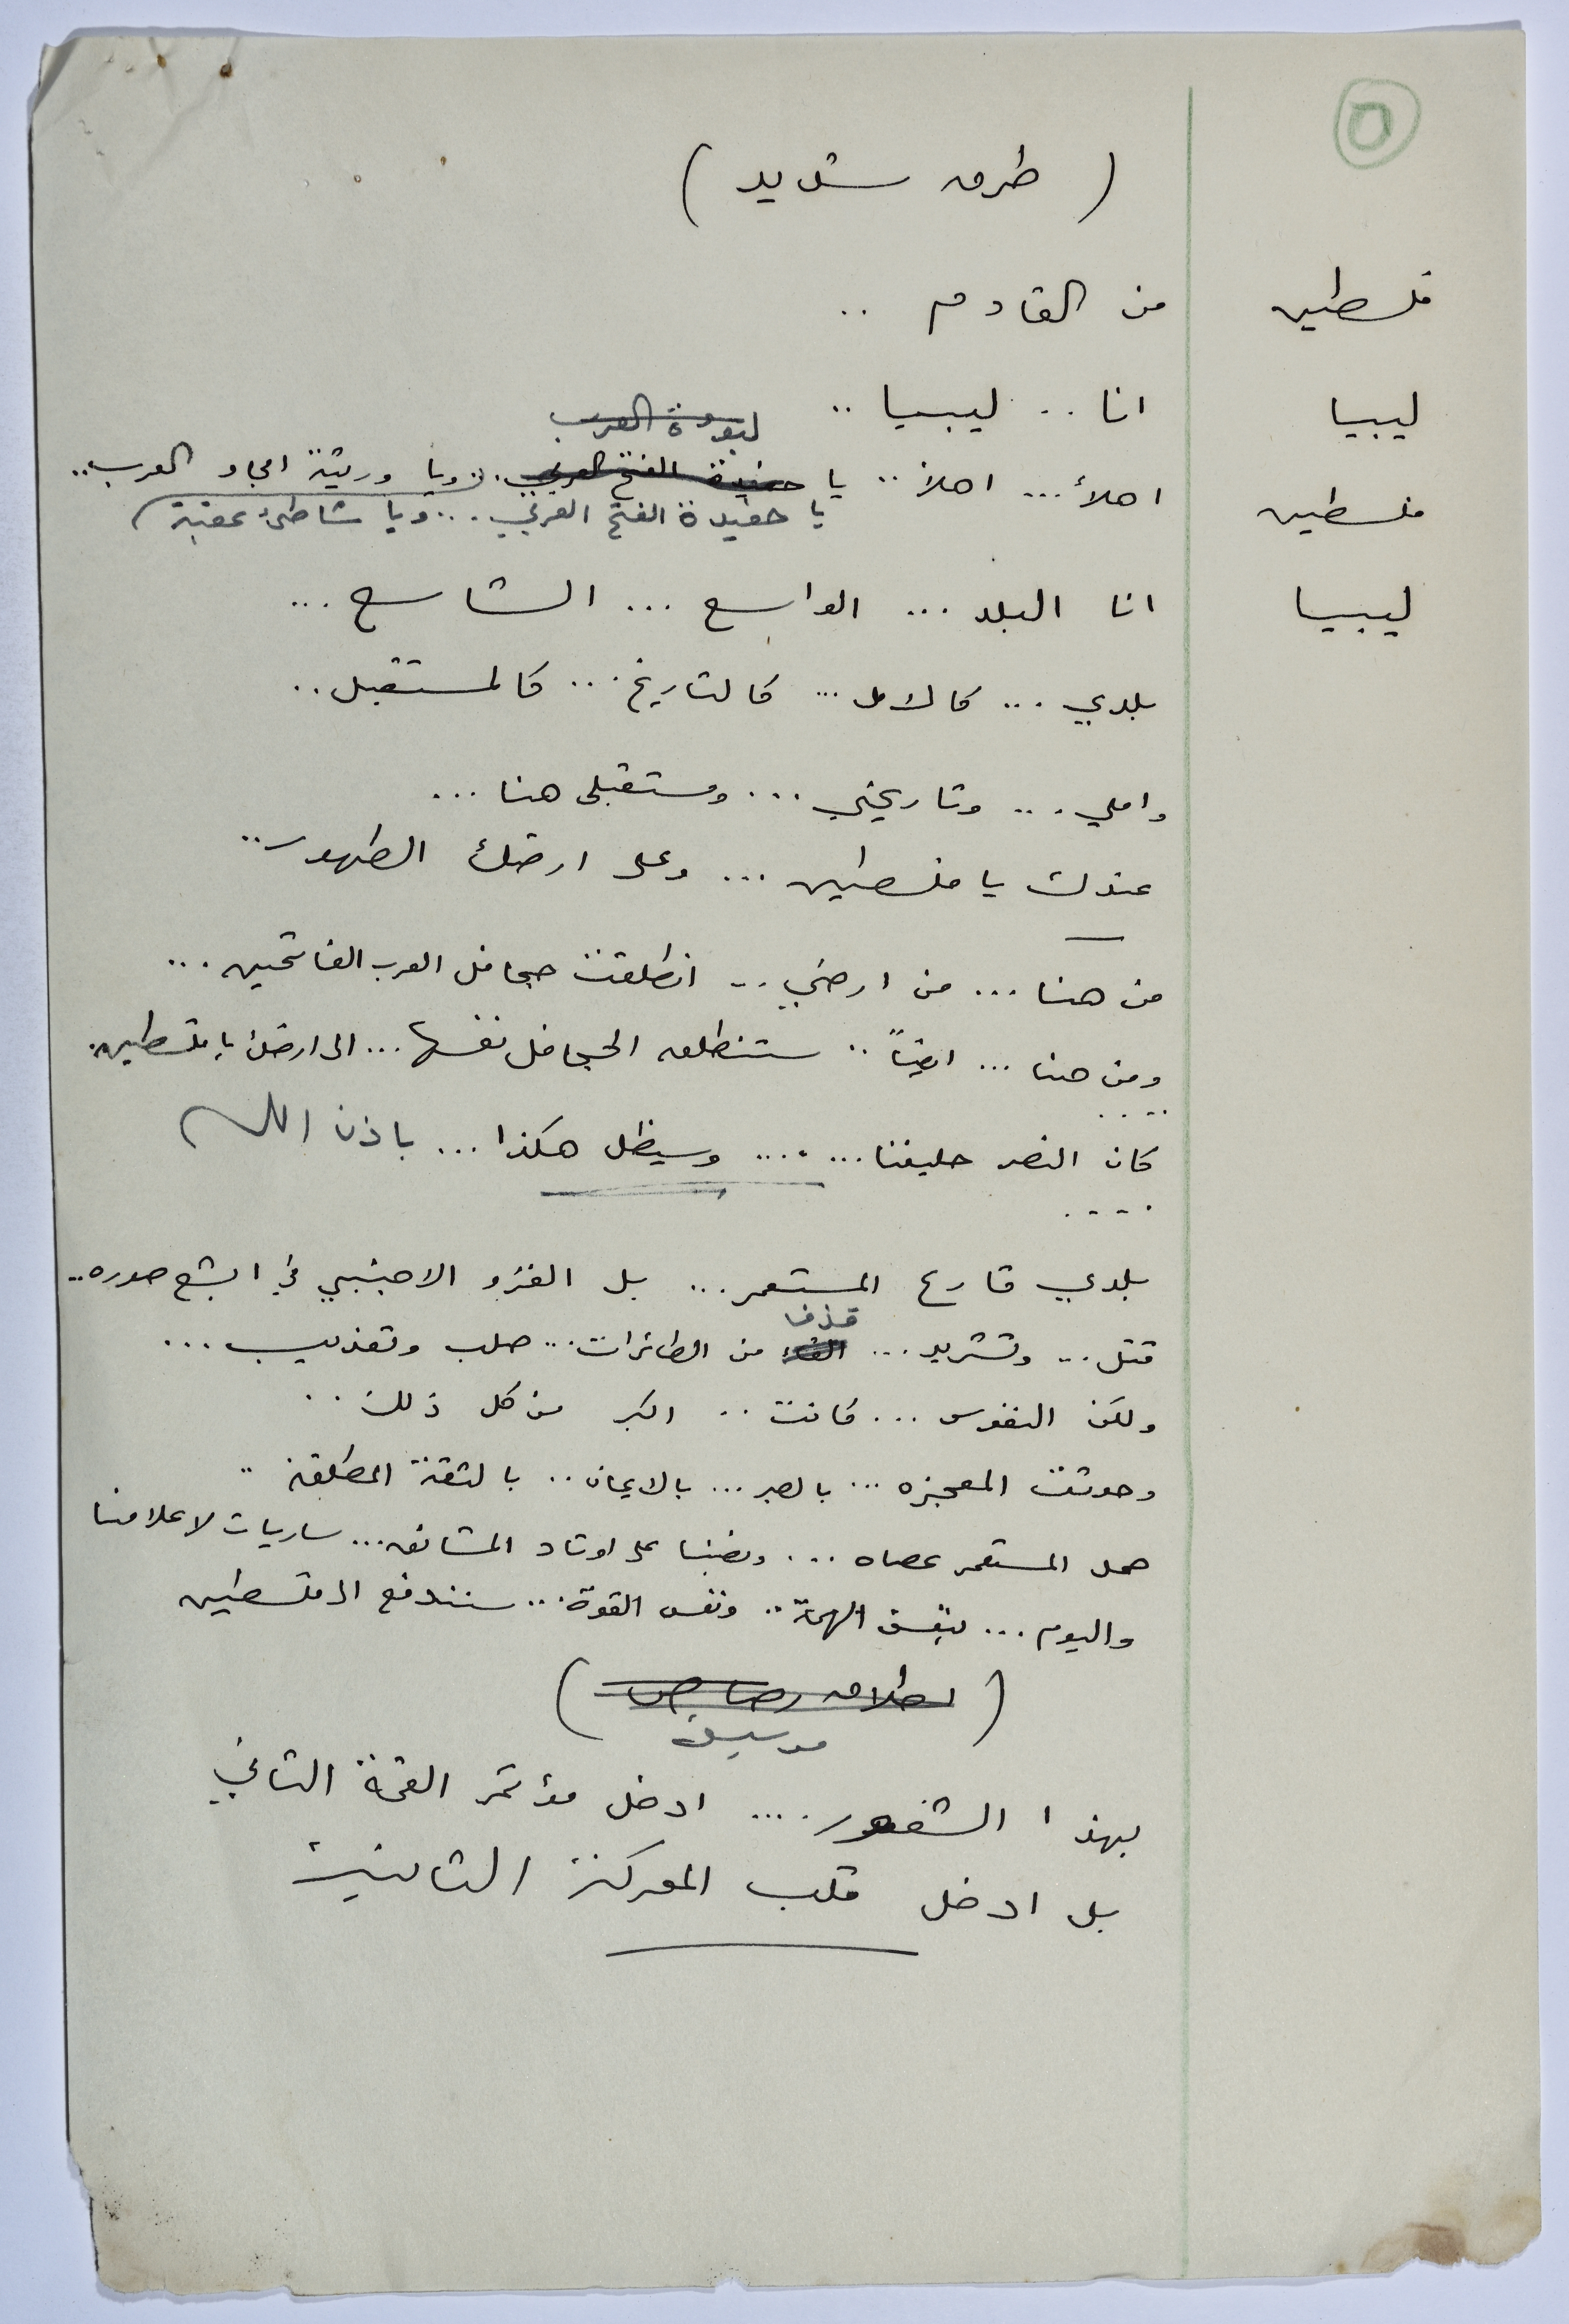 ٥
( طرق شديد )
فلسطين من القادم ..
ليبيا انا .. ليبيا ..
لبوة العرب
فلسطين اهلأ ... اهلاً .. يا حفيدة الفتح العربي .. ويا وريثة امجاد العرب ..
يا حفيدة الفتح العربي ... ويا شاطئ عقبة )
ليبيا انا البلد ... الواسع ... الشاسع ...
بلدي ... كالامل ... كالتاريخ ... كالمستقبل ..
واملي ... وتاريخي ... ومستقبلى هنا ...
عندك يا فلسطين ... وعلى ارضك الطهور ..
من هنا ... من ارضي .. انطلقت جحافل العرب الفاتحين ...
ومن هنا ... ايضاً .. ستنطلق الجحافل نفسها ... الى ارضك يا فلسطين ..
....
كان النصر حليفنا ... .... وسيظل هكذا ... باذن الله
....
بلدي قارع المستعمر ... بل الغزو الاجنبي في ابشع صوره ..
قذف
قتل ... وتشريد ... القاء من الطائرات ... صلب وتعذيب ...
ولكن النفوس ... كانت .. اكبر من كل ذلك ..
وحدثت المعجزه ... بالصبر ... بالايمان .. بالثقة المطلقة ..
حمل المستعمر عصاه ... ونصبنا على اوتاد المشانق ... ساريات لاعلامنا
واليوم ... بنفس الهمة .. ونفس القوة ... سنندفع الى فلسطين
( اطلاق رصاص )
موسيقى
بهذا الشعور .... ادخل مؤتمر القمة الثاني
بل ادخل قلب المعركة الثانية